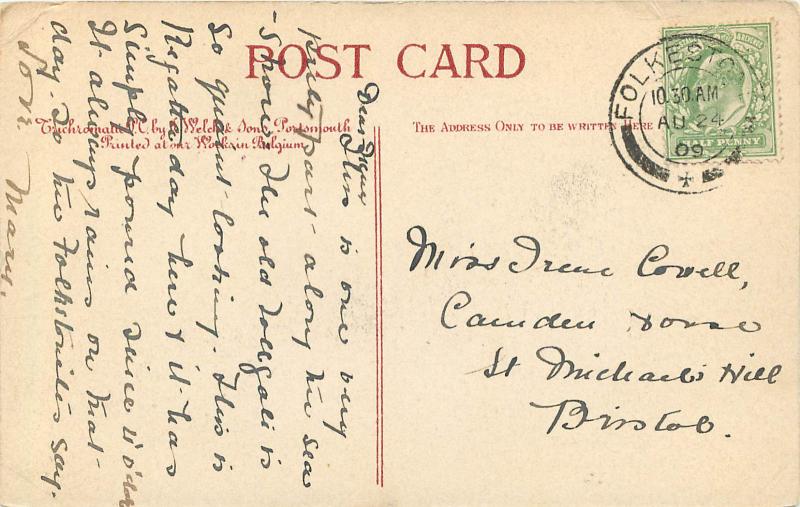 POST CARD
Trichromatic P.C. by J. Welch & Sons, Portsmouth
Printed at our Works in Belgium
THE ADDRESS ONLY TO BE WRITTEN HERE
FOLKESTO
10.30 AM
AU 24
09
HALF PENNY
Dear
This is one very
pretty part along the sea
shore the old tollgate is
so quaint looking. This is
Regatta day here & it has
simply poured since 11 o'clk
It always rains on that
day so the Folkstonites say.
Love
Mary.
Miss Irene Covell,
Camden House
St Michaels Hill
Bristol.